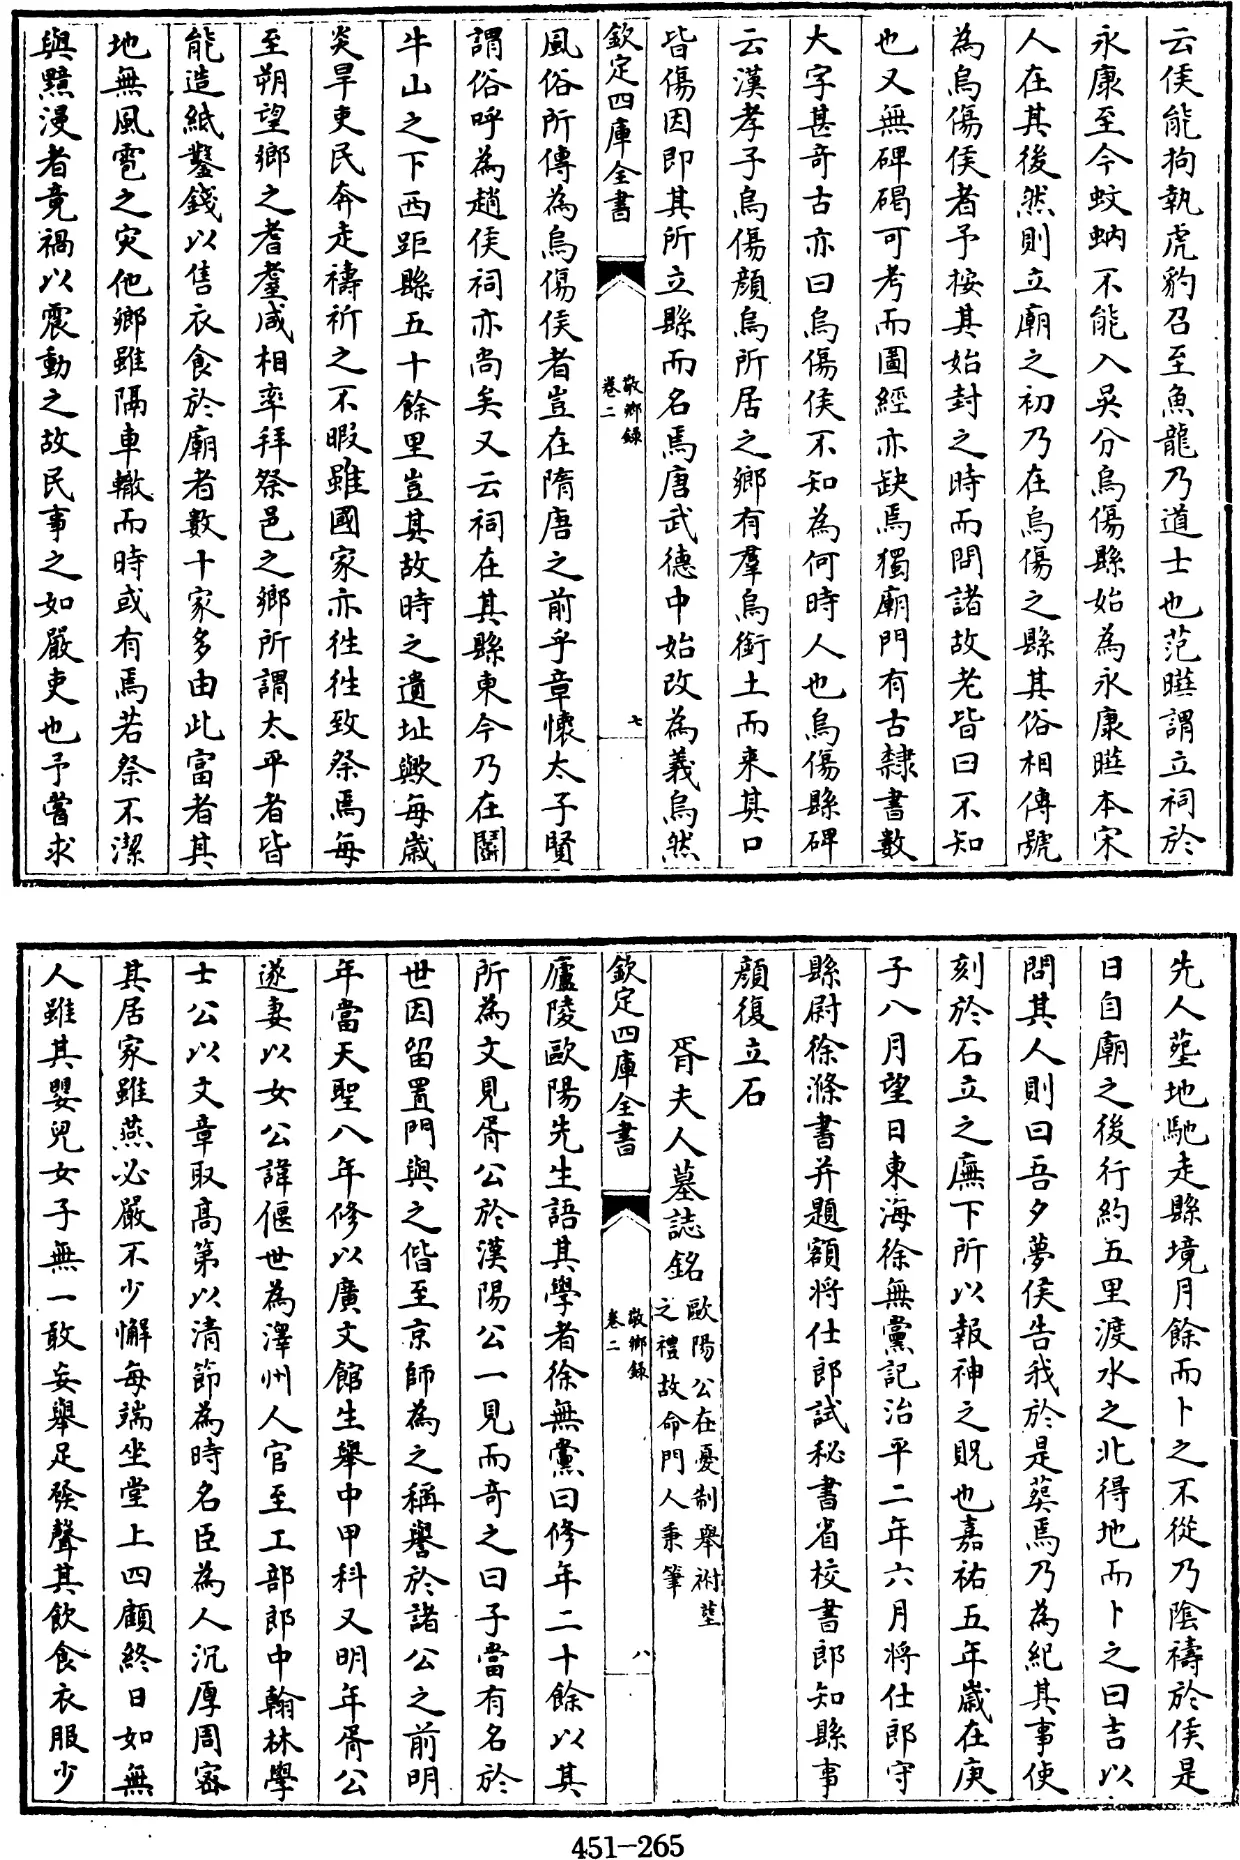 云侯能拘執虎豹召至魚龍乃道士也范曄謂立祠於
永康至今蚊蚋不能入吳分烏傷縣始為永康曄本宋
人在其後然則立廟之初乃在烏傷之縣其俗相傳號
為烏傷侯者予按其始封之時而問諸故老皆曰不知
也又無碑碣可考而圖經亦缺焉獨廟門有古隸書數
大字甚奇古亦曰烏傷侯不知為何時人也烏傷縣碑
云漢孝子烏傷顔烏所居之鄉有羣烏銜土而來其口
皆傷因即其所立縣而名焉唐武德中始改為義烏然
欽定四庫全書
敬鄉錄
卷二
七
風俗所傳為烏傷侯者豈在隋唐之前乎章懷太子賢
謂俗呼為趙侯祠亦尚矣又云祠在其縣東今乃在鬭
牛山之下西距縣五十餘里豈其故時之遺址歟每歲
炎旱吏民奔走禱祈之不暇雖國家亦往往致祭焉每
至朔望鄉之耆耋咸相率拜祭邑之鄉所謂太平者皆
能造紙鑿錢以售衣食於廟者數十家多由此富者其
地無風雹之灾他鄉雖隔車轍而時或有焉若祭不潔
與黷漫者竟禍以震動之故民事之如嚴吏也予嘗求
先人塟地馳走縣境月餘而卜之不從乃陰禱於侯是
日自廟之後行約五里渡水之北得地而卜之曰吉以
問其人則曰吾夕夢侯告我於是葬焉乃為紀其事使
刻於石立之廡下所以報神之貺也嘉祐五年歲在庚
子八月望日東海徐無黨記治平二年六月將仕郎守
縣尉徐滌書并題額將仕郎試秘書省校書郎知縣事
顔復立石
胥夫人墓誌銘
歐陽公在憂制舉祔塟
之禮故命門人秉筆
欽定四庫全書
敬鄉錄
卷二
八
廬陵歐陽先生語其學者徐無黨曰修年二十餘以其
所為文見胥公於漢陽公一見而奇之曰子當有名於
世因留置門與之偕至京師為之稱譽於諸公之前明
年當天聖八年修以廣文館生舉中甲科又明年胥公
遂妻以女公諱偃世為澤州人官至工部郎中翰林學
士公以文章取高第以清節為時名臣為人沉厚周宻
其居家雖燕必嚴不少懈每端坐堂上四顧終日如無
人雖其嬰兒女子無一敢妄舉足發聲其飲食衣服少
451-265